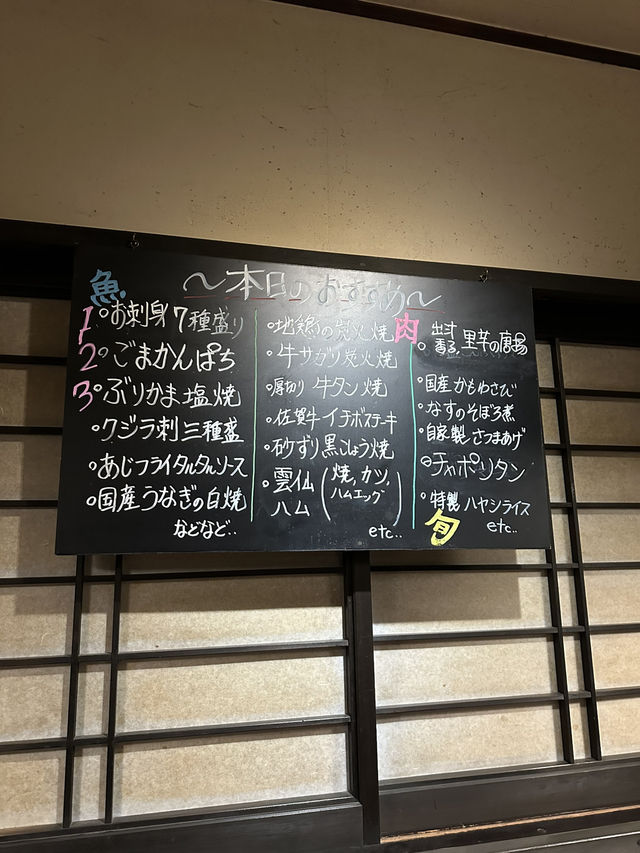 ～本日のおすすめ～
魚
1 ○お刺身7種盛り
2 ○ごまかんぱち
3 ○ぶりかま塩焼
○クジラ刺三種盛
○あじフライタルタルソース
○国産うなぎの白焼
などなど..
肉
○地鶏の炭火焼
○牛サガリ炭火焼
○厚切り 牛タン焼
○佐賀牛イチボステーキ
○砂ずり黒こしょう焼
○雲仙ハム(焼、カツ、ハムエッグ)
etc..
○出汁香る、里芋の唐揚
○国産かもわさび
○なすのそぼろ煮
○自家製さつまあげ
○チャポリタン
○特製ハヤシライス
etc..
旬